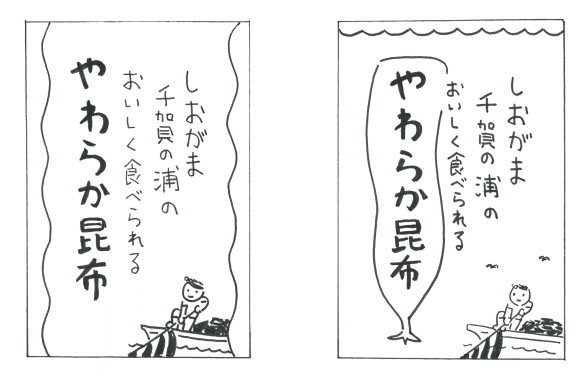 しおがま
千賀の浦の
おいしく食べられる
やわらか昆布
しおがま
千賀の浦の
おいしく食べられる
やわらか昆布